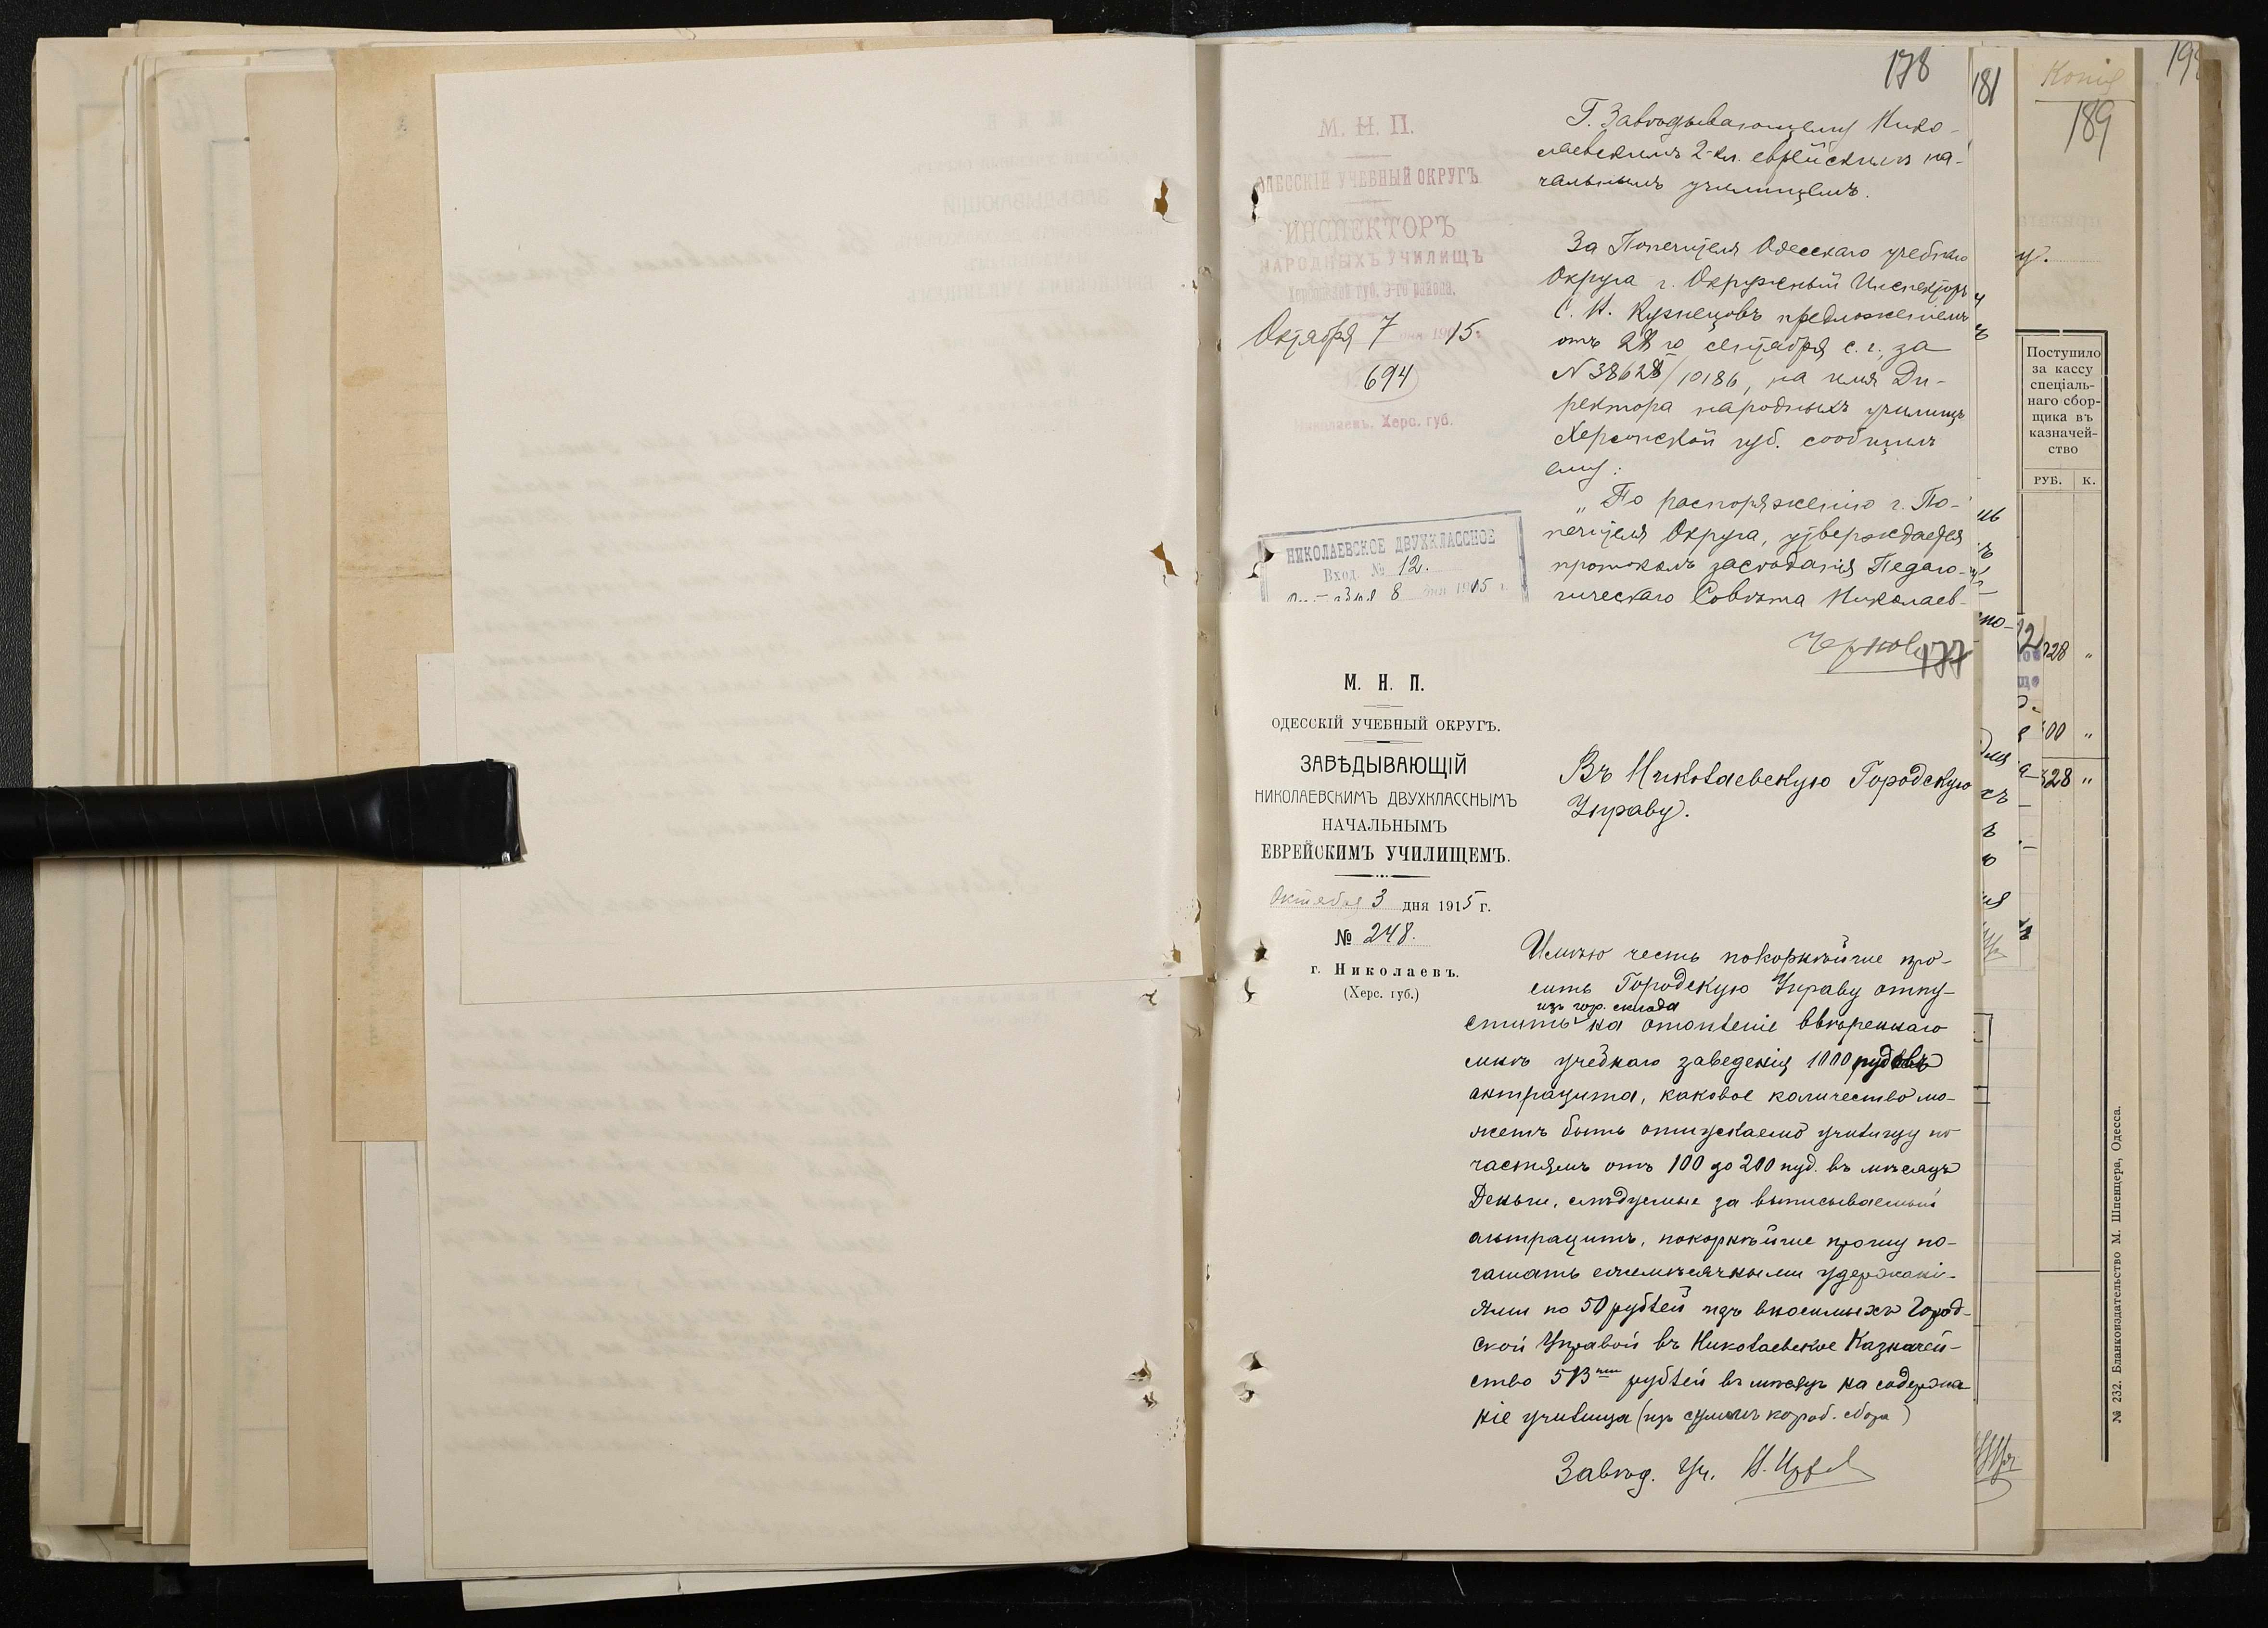 178
М. Н. П.
ОДЕССКІЙ УЧЕБНЫЙ ОКРУГЪ
ИНСПЕКТОРЪ
НАРОДНЫХЪ УЧИЛИЩЪ
Херсонской губ. 3-го района.
Октября 7 дня 1915 г.
694
Николаевъ, Херс. губ.
НИКОЛАЕВСКОЕ ДВУХКЛАССНОЕ
Вход. № 12.
8 дня 1915 г.
Г. Завѣдывающему Нико-
лаевскимъ 2-кл. еврейскимъ на-
чальнымъ училищемъ.
За Попечителя Одесскаго учебнаго
Округа г. Окружный Инспекторъ
С. И. Кузнецовъ предложеніемъ
отъ 28 го сентября с. г., за
N 38628/10186, на имя Ди-
ректора народныхъ училищъ
Херсонской губ. сообщилъ
ему:
„По распоряженію г. По-
печителя Округа, утверждается
протоколъ засѣданія Педаго-
гическаго Совѣта Николаев-
177
М. Н. П.
ОДЕССКІЙ УЧЕБНЫЙ ОКРУГЪ.
ЗАВѢДЫВАЮЩІЙ
НИКОЛАЕВСКИМЪ ДВУХКЛАССНЫМЪ
НАЧАЛЬНЫМЪ
ЕВРЕЙСКИМЪ УЧИЛИЩЕМЪ.
Октября 3 дня 1915 г.
№ 248.
г. Николаевъ.
(Херс. губ.)
Въ Николаевскую Городскую
Управу.
Имѣю честь покорнѣйше про-
сить Городскую Управу отпу-
изъ гор. склада
стить на отопленіе ввѣреннаго
мнѣ учебнаго заведенія 1000 пудовъ
антрацита, каковое количество мо-
жетъ быть отпускаемо училищу по
частямъ отъ 100 до 200 пуд. въ мѣсяцъ
Деньги, слѣдуемые за выписываемый
антрацитъ, покорнѣйше прошу по-
гашать ежемѣсячными удержані-
ями по 50 рублей изъ вносимыхъ Город-
ской Управой въ Николаевское Казначей-
ство 513 рублей въ мѣсяцъ на содержа-
ніе училища (изъ суммъ короб. сбора)
Завѣд. Уч.
181
189
Поступило
за кассу
спеціаль-
наго сбор-
щика въ
казначей-
ство
РУБ. К.
№ 232. Бланкоиздательство М. Шпенцера, Одесса.